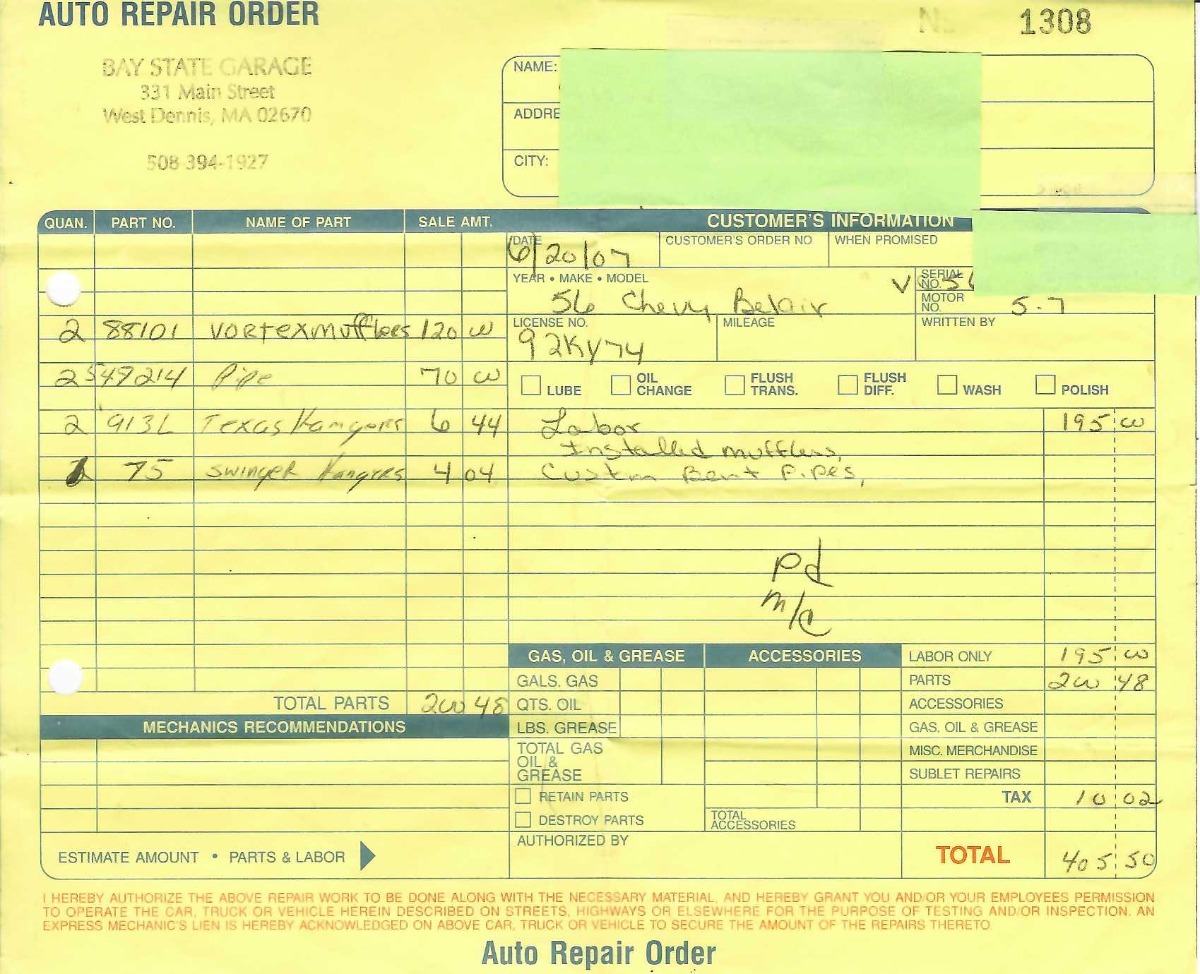 AUTO REPAIR ORDER
No 1308
BAY STATE GARAGE
331 Main Street
West Dennis, MA 02670
508-394-1927
NAME:
ADDRE
CITY:
QUAN. PART NO. NAME OF PART SALE AMT.
CUSTOMER'S INFORMATION
DATE 6/20/07 CUSTOMER'S ORDER NO WHEN PROMISED
YEAR • MAKE • MODEL 56 Chevy Belair
SERIAL NO. VC56
MOTOR NO. 5.7
LICENSE NO. 92KY74 MILEAGE WRITTEN BY
2 88101 VORTEX mufflers 120 00
25 49214 Pipe 70 00
2 913L Texas Hangers 6 44
75 SWINGER Hangers 4 04
LUBE OIL CHANGE FLUSH TRANS. FLUSH DIFF. WASH POLISH
Labor 195 00
Installed mufflers,
Custm Bent Pipes,
Pd
M/C
TOTAL PARTS 200 48
MECHANICS RECOMMENDATIONS
ESTIMATE AMOUNT • PARTS & LABOR
GAS, OIL & GREASE ACCESSORIES
GALS. GAS
QTS. OIL
LBS. GREASE
TOTAL GAS
OIL &
GREASE
RETAIN PARTS
DESTROY PARTS
TOTAL ACCESSORIES
AUTHORIZED BY
LABOR ONLY 195 00
PARTS 200 48
ACCESSORIES
GAS, OIL & GREASE
MISC. MERCHANDISE
SUBLET REPAIRS
TAX 10 02
TOTAL 405 50
I HEREBY AUTHORIZE THE ABOVE REPAIR WORK TO BE DONE ALONG WITH THE NECESSARY MATERIAL, AND HEREBY GRANT YOU AND/OR YOUR EMPLOYEES PERMISSION
TO OPERATE THE CAR, TRUCK OR VEHICLE HEREIN DESCRIBED ON STREETS, HIGHWAYS OR ELSEWHERE FOR THE PURPOSE OF TESTING AND/OR INSPECTION. AN
EXPRESS MECHANIC'S LIEN IS HEREBY ACKNOWLEDGED ON ABOVE CAR, TRUCK OR VEHICLE TO SECURE THE AMOUNT OF THE REPAIRS THERETO.
Auto Repair Order